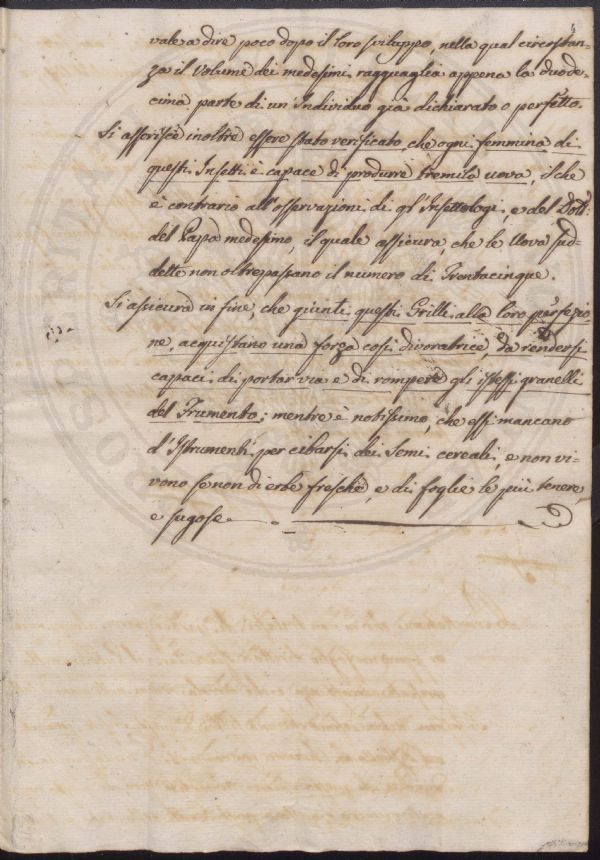 vale a dire poco dopo il loro sviluppo, nella qual circostan-
za il volume dei medesimi ragguaglia appena la duode-
cima parte di un Individuo già dichiarato o perfetto.
Si asserisce inoltre essere stato verificato, che ogni femmina di
questi Insetti è capace di produrre tremila uova, il che
è contrario all'osservazioni di gl'Insettologi, e del Dott:
del Papa medesimo, il quale assicura, che le Uova sud-
dette non oltrepassano il numero di Trentacinque.
Si assicura in fine, che giunti questi Grilli alla loro perfezio
ne, acquistano una forza così divoratrice, da rendersi
capaci di portar via e di rompere gli istessi granelli
del Frumento; mentre è notissimo, che essi mancano
d'Istrumenti per cibarsi dei Semi cereali, e non vi-
vono se non di erbe fresche, e di foglie le più tenere,
e sugose.
PROSPERITA